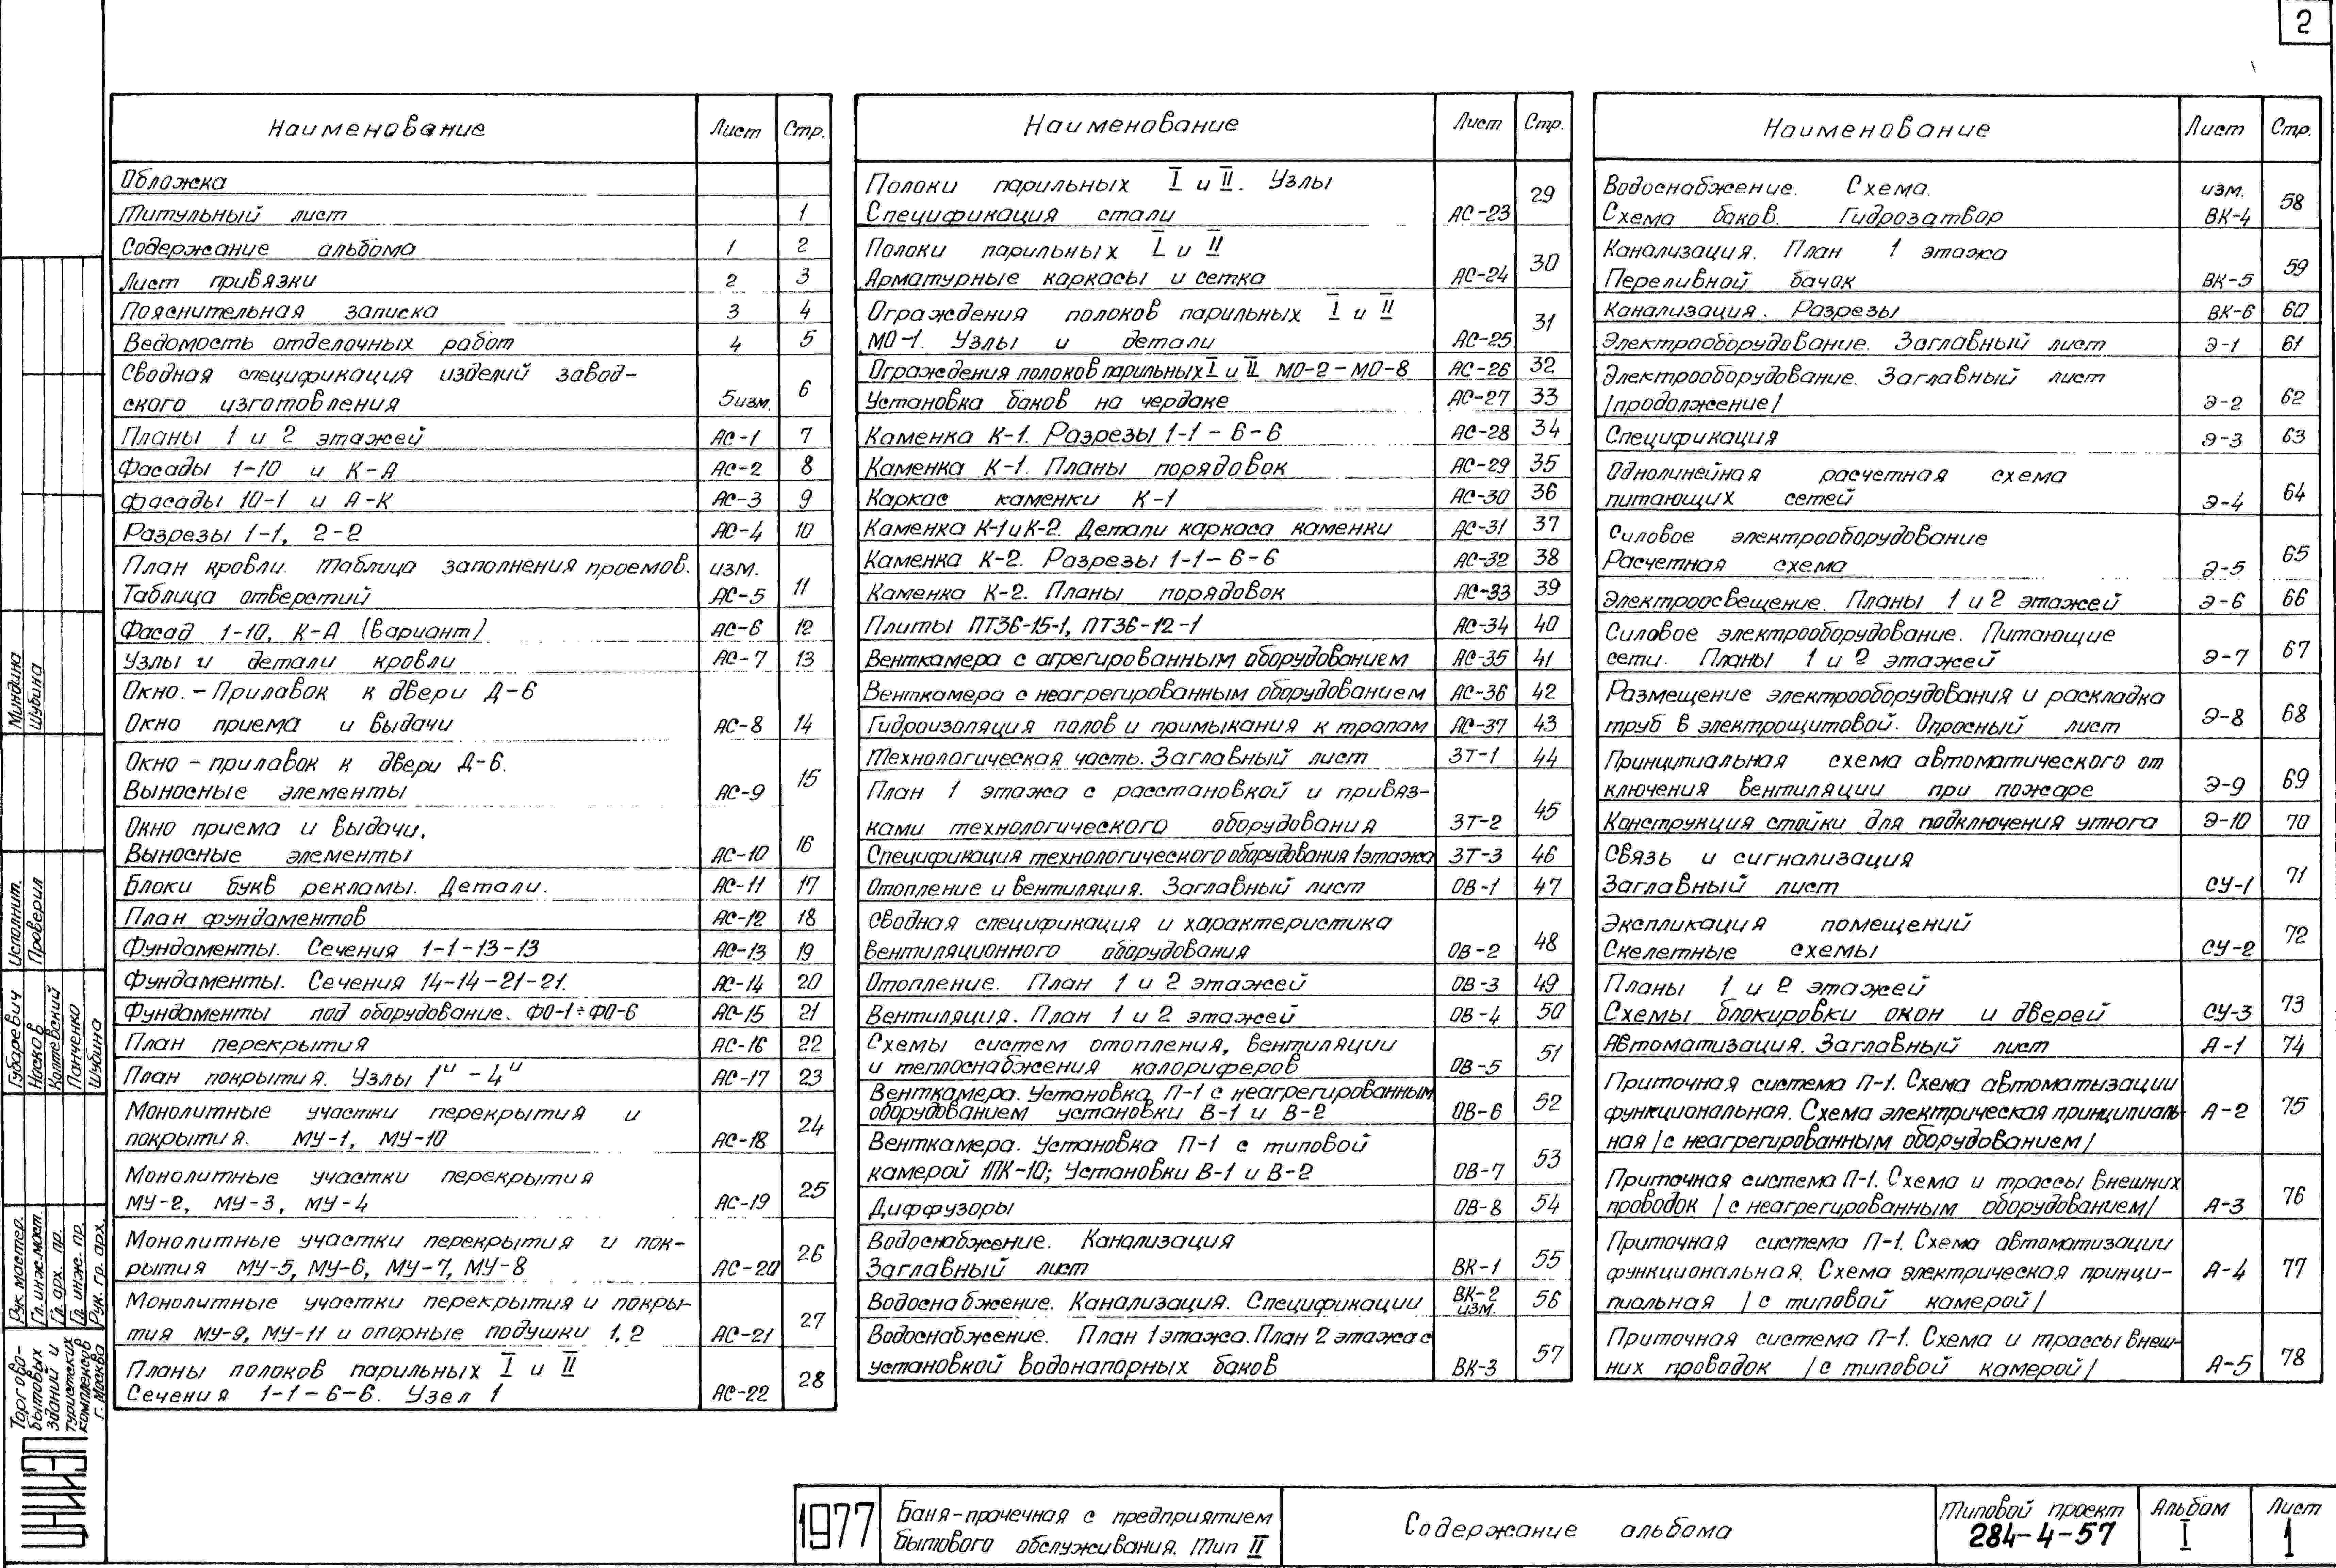 2
Наименование Лист Стр.
Обложка
Титульный лист 1
Содержание альбома 1 2
Лист привязки 2 3
Пояснительная записка 3 4
Ведомость отделочных работ 4 5
Сводная спецификация изделий завод-
ского изготовления 5изм. 6
Планы 1 и 2 этажей АС-1 7
Фасады 1-10 и К-А АС-2 8
Фасады 10-1 и А-К АС-3 9
Разрезы 1-1, 2-2 АС-4 10
План кровли. Таблица заполнения проемов. изм.
Таблица отверстий АС-5 11
Фасад 1-10, К-А (вариант) АС-6 12
Узлы и детали кровли АС-7 13
Окно.-Прилавок к двери Д-6
Окно приема и выдачи АС-8 14
Окно-прилавок к двери Д-6.
Выносные элементы АС-9 15
Окно приема и выдачи.
Выносные элементы АС-10 16
Блоки букв рекламы. Детали. АС-11 17
План фундаментов АС-12 18
Фундаменты. Сечения 1-1-13-13 АС-13 19
Фундаменты. Сечения 14-14-21-21. АС-14 20
Фундаменты под оборудование. ФО-1÷ФО-6 АС-15 21
План перекрытия АС-16 22
План покрытия. Узлы 1ᵘ-4ᵘ АС-17 23
Монолитные участки перекрытия и
покрытия. МУ-1, МУ-10 АС-18 24
Монолитные участки перекрытия
МУ-2, МУ-3, МУ-4 АС-19 25
Монолитные участки перекрытия и пок-
рытия МУ-5, МУ-6, МУ-7, МУ-8 АС-20 26
Монолитные участки перекрытия и покры-
тия МУ-9, МУ-11 и опорные подушки 1, 2 АС-21 27
Планы полоков парильных I и II
Сечения 1-1-6-6. Узел 1 АС-22 28
Наименование Лист Стр.
Полоки парильных I и II. Узлы
Спецификация стали АС-23 29
Полоки парильных I и II
Арматурные каркасы и сетка АС-24 30
Ограждения полоков парильных I и II
МО-1. Узлы и детали АС-25 31
Ограждения полоков парильных I и II МО-2-МО-8 АС-26 32
Установка баков на чердаке АС-27 33
Каменка К-1. Разрезы 1-1-6-6 АС-28 34
Каменка К-1. Планы порядовок АС-29 35
Каркас каменки К-1 АС-30 36
Каменка К-1 и К-2. Детали каркаса каменки АС-31 37
Каменка К-2. Разрезы 1-1-6-6 АС-32 38
Каменка К-2. Планы порядовок АС-33 39
Плиты ПТ36-15-1, ПТ36-12-1 АС-34 40
Венткамера с агрегированным оборудованием АС-35 41
Венткамера с неагрегированным оборудованием АС-36 42
Гидроизоляция полов и примыкания к трапам АС-37 43
Технологическая часть. Заглавный лист ЗТ-1 44
План 1 этажа с расстановкой и привяз-
ками технологического оборудования ЗТ-2 45
Спецификация технологического оборудования 1этажа ЗТ-3 46
Отопление и вентиляция. Заглавный лист ОВ-1 47
Сводная спецификация и характеристика
вентиляционного оборудования ОВ-2 48
Отопление. План 1 и 2 этажей ОВ-3 49
Вентиляция. План 1 и 2 этажей ОВ-4 50
Схемы систем отопления, вентиляции
и теплоснабжения калориферов ОВ-5 51
Венткамера. Установка П-1 с неагрегированным
оборудованием установки В-1 и В-2 ОВ-6 52
Венткамера. Установка П-1 с типовой
камерой 1ПК-10; Установки В-1 и В-2 ОВ-7 53
Диффузоры ОВ-8 54
Водоснабжение. Канализация
Заглавный лист ВК-1 55
Водоснабжение. Канализация. Спецификации ВК-2 изм. 56
Водоснабжение. План 1этажа. План 2 этажа с
установкой водонапорных баков ВК-3 57
Наименование Лист Стр.
Водоснабжение. Схема. изм.
Схема баков. Гидрозатвор ВК-4 58
Канализация. План 1 этажа
Переливной бачок ВК-5 59
Канализация. Разрезы ВК-6 60
Электрооборудование. Заглавный лист Э-1 61
Электрооборудование. Заглавный лист
/продолжение/ Э-2 62
Спецификация Э-3 63
Однолинейная расчетная схема
питающих сетей Э-4 64
Силовое электрооборудование
Расчетная схема Э-5 65
Электроосвещение. Планы 1 и 2 этажей Э-6 66
Силовое электрооборудование. Питающие
сети. Планы 1 и 2 этажей Э-7 67
Размещение электрооборудования и раскладка
труб в электрощитовой. Опросный лист Э-8 68
Принципиальная схема автоматического от
ключения вентиляции при пожаре Э-9 69
Конструкция стойки для подключения утюга Э-10 70
Связь и сигнализация
Заглавный лист СУ-1 71
Экспликация помещений
Скелетные схемы СУ-2 72
Планы 1 и 2 этажей
Схемы блокировки окон и дверей СУ-3 73
Автоматизация. Заглавный лист А-1 74
Приточная система П-1. Схема автоматызации
функциональная. Схема электрическая принципиаль-
ная /с неагрегированным оборудованием/ А-2 75
Приточная система П-1. Схема и трассы внешних
проводок /с неагрегированным оборудованием/ А-3 76
Приточная система П-1. Схема автоматизации
функциональная. Схема электрическая принци-
пиальная /с типовой камерой/ А-4 77
Приточная система П-1. Схема и трассы внеш-
них проводок /с типовой камерой/ А-5 78
Миндина
Шубина
Исполнит.
Проверил
Губаревич
Носков
Колтевский
Панченко
Шубина
Рук. мастер.
Гл. инж. маст.
Гл. арх. пр.
Гл. инж. пр.
Рук. гр. арх.
ЦНИИЭП
Торгово-
бытовых
зданий и
туристских
комплексов
г. Москва
1977
Баня-прачечная с предприятием
бытового обслуживания. Тип II
Содержание альбома
Типовой проект
284-4-57
Альбом
I
Лист
1